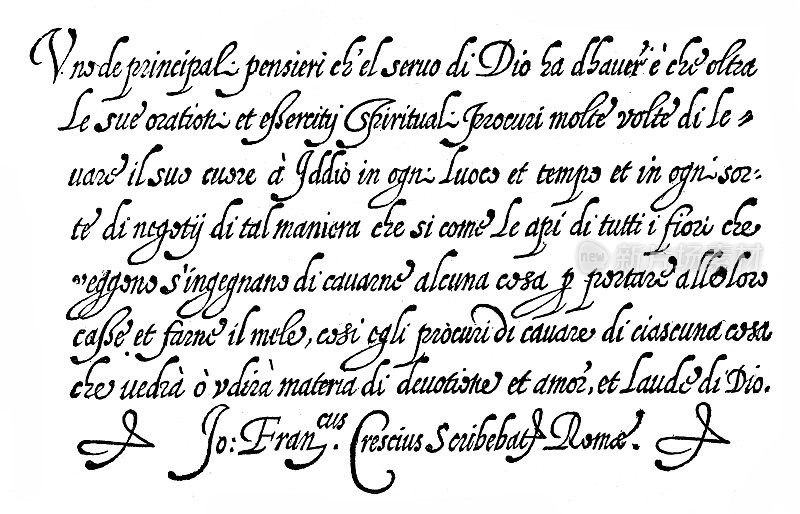 Vno de principal pensieri ch'el seruo di Dio ha d'hauer' è che oltra
le sue oration et esserciti Spiritual procuri molte volte di le=
uare il suo cuore à Iddio in ogni luoco et tempo et in ogni sor=
te di negotij di tal maniera che si come le api di tutti i fiori che
veggono s'ingegnano di cauarne alcuna cosa p portare alle loro
casse et farne il mele, cosi egli procuri di cauare di ciascuna cosa
che uedrà ò vdirà materia di deuotione et amor, et laude di Dio.
Jo: Fran.cus Crescius Scribebat Romæ.
new